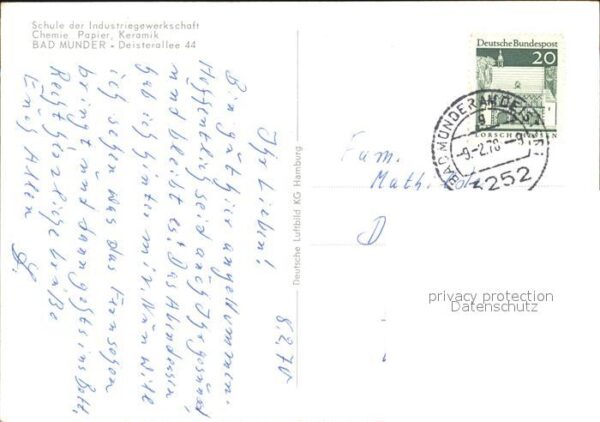 Schule der Industriegewerkschaft
Chemie, Papier, Keramik
BAD MÜNDER • Deisterallee 44
8.2.70
Ihr Lieben!
Bin gut hier angekommen.
Hoffentlich seid auch Ihr gesund
und bleibt es! Das Abendessen
hab ich hinter mir. Nun will
ich sehen was das Fernsehen
bringt und dann geht's ins Bett,
Recht herzliche Grüße
Euch Allen
Deutsche Luftbild KG Hamburg
Deutsche Bundespost
20
LORSCH HESSEN
BAD MÜNDER AM DEISTER
-9.-2.70-9
3252
Fam.
Math.
D
privacy protection
Datenschutz